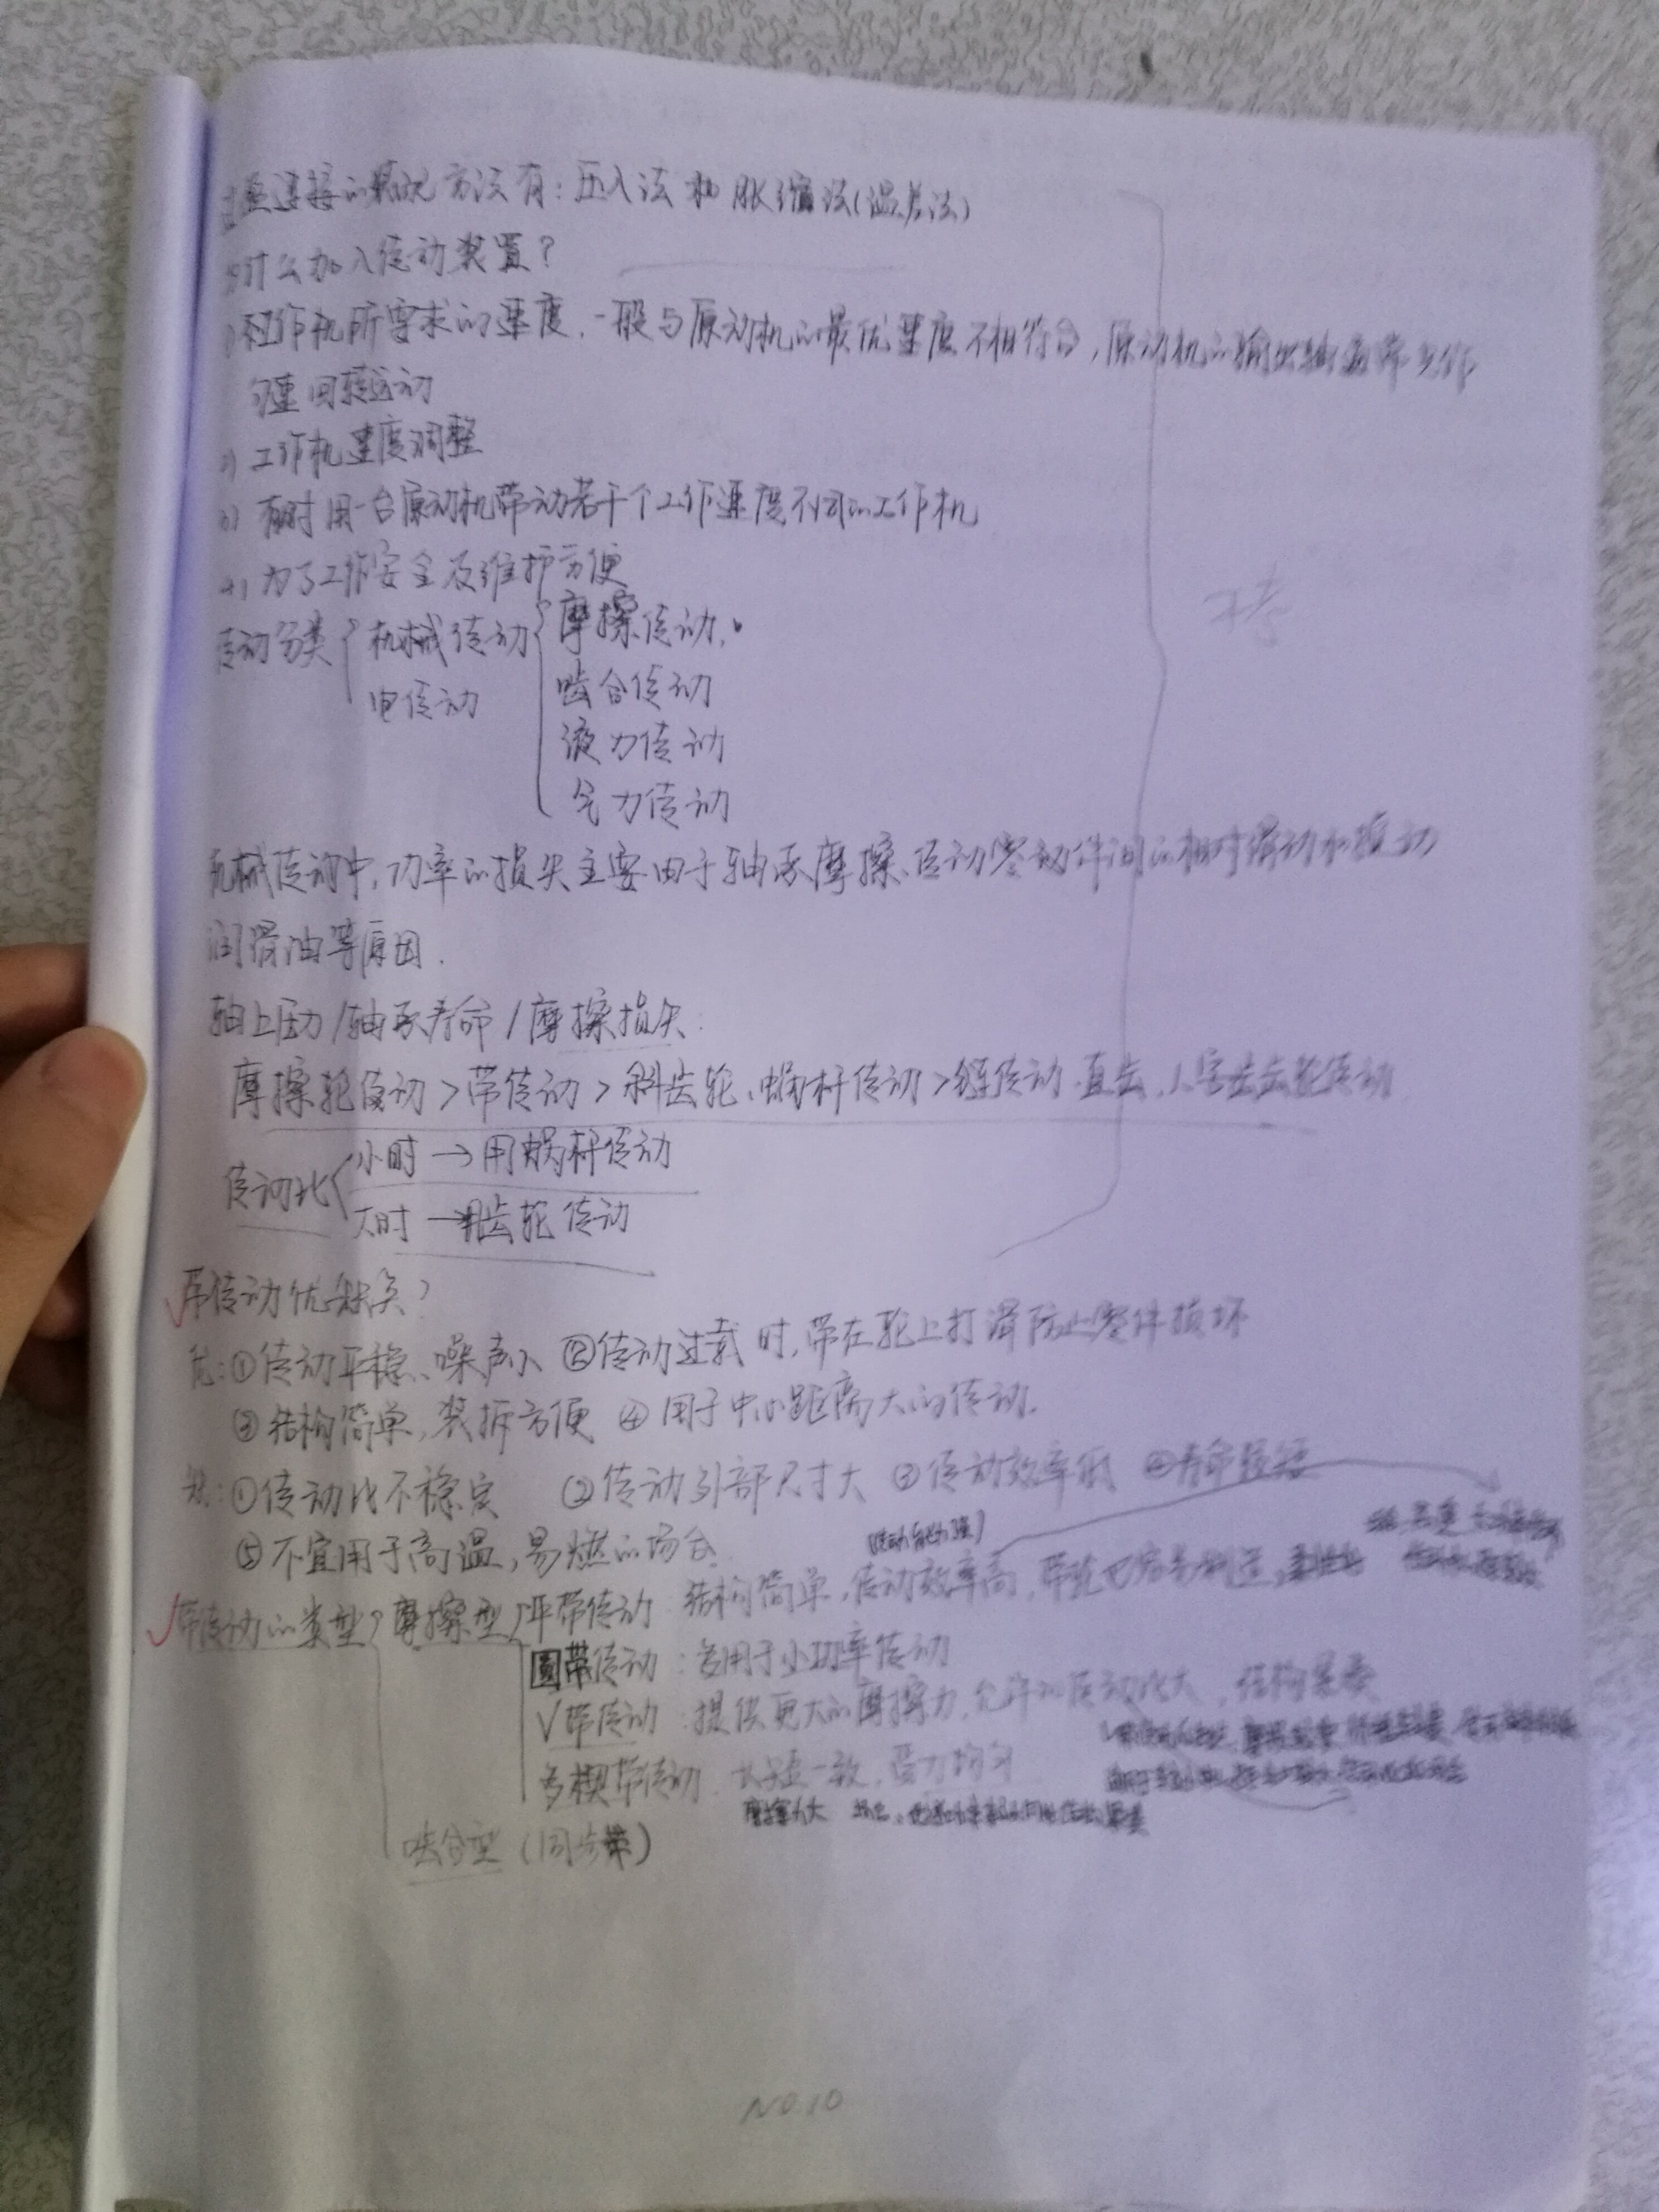 过盈连接的装配方法有：压入法和胀缩法（温差法）
为什么加入传动装置？
1）工作机所需求的速度，一般与原动机的最优速度不相符合，原动机的输出轴通常只作
匀速回转运动
2）工作机速度调整
3）有时用一台原动机带动若干个工作速度不同的工作机
4）为了工作安全及维护方便
传动分类 机械传动 摩擦传动
电传动 啮合传动
液力传动
气力传动
不考
机械传动中，功率的损失主要由于轴承摩擦、传动零动件间的相对滑动和搅动
润滑油等原因.
轴上压力/轴承寿命/摩擦损失：
摩擦轮传动>带传动>斜齿轮、蜗杆传动>链传动 直齿、人字齿齿轮传动
传动比 小时→用蜗杆传动
大时→用齿轮传动
√带传动优缺点？
优：①传动平稳、噪声小 ②传动过载时，带在轮上打滑防止零件损坏
③结构简单，装拆方便 ④用于中心距离大的传动.
缺：①传动比不稳定 ②传动外部尺寸大 ③传动效率低 ④寿命较短
⑤不宜用于高温，易燃的场合.
（传动能力强）
√带传动的类型 摩擦型 平带传动 结构简单，传动效率高，带轮也容易制造，
圆带传动：多用于小功率传动
V带传动：提供更大的摩擦力，允许的传动比大，结构紧凑
多楔带传动. 长短一致，受力均匀
摩擦力大
啮合型（同步带）
NO.10